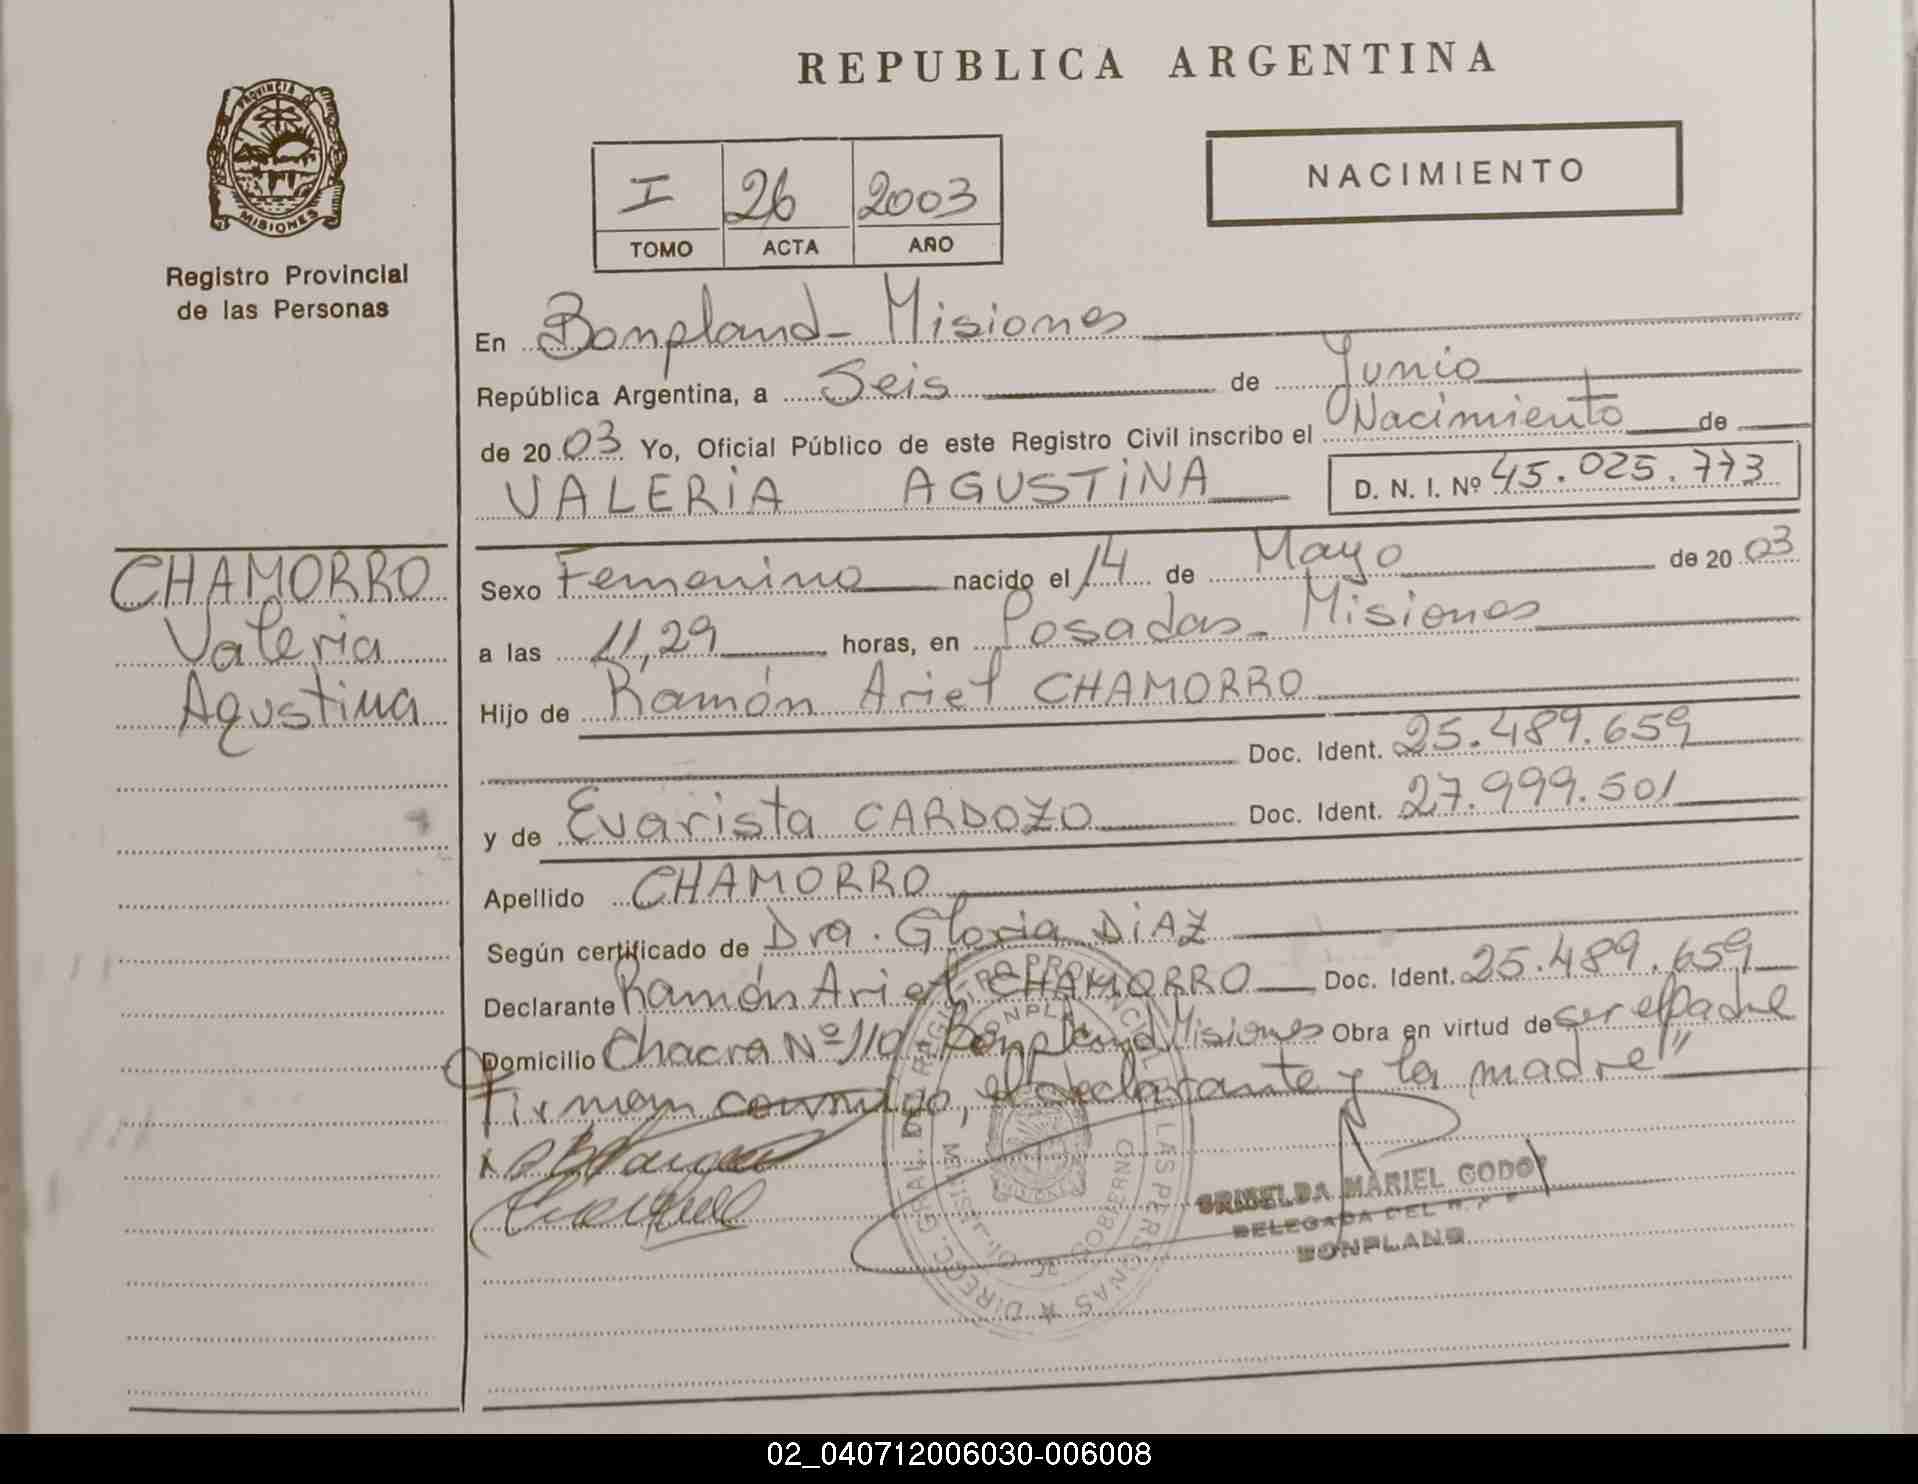 REPUBLICA ARGENTINA
PROVINCIA DE
MISIONES
Registro Provincial
de las Personas
I 26 2003
TOMO ACTA AÑO
NACIMIENTO
En Bonpland - Misiones
República Argentina, a Seis de Junio
de 2003 Yo, Oficial Público de este Registro Civil inscribo el Nacimiento de
VALERIA AGUSTINA D. N. I. Nº 45.025.773
CHAMORRO
Valeria
Agustina
Sexo Femenino nacido el 14 de Mayo de 2003
a las 11,29 horas, en Posadas - Misiones
Hijo de Ramón Ariel CHAMORRO
Doc. Ident. 25.489.659
y de Evarista CARDOZO Doc. Ident. 27.999.501
Apellido CHAMORRO
Según certificado de Dra. Gloria DIAZ
Declarante Ramón Ariel CHAMORRO Doc. Ident. 25.489.659
Domicilio Chacra Nº 110 - Bonpland Misiones Obra en virtud de ser el Padre
Firman conmigo, el declarante y la madre"
GRISELDA MARIEL GODOY
DELEGADA DEL R. P. P.
BONPLAND
02_040712006030-006008